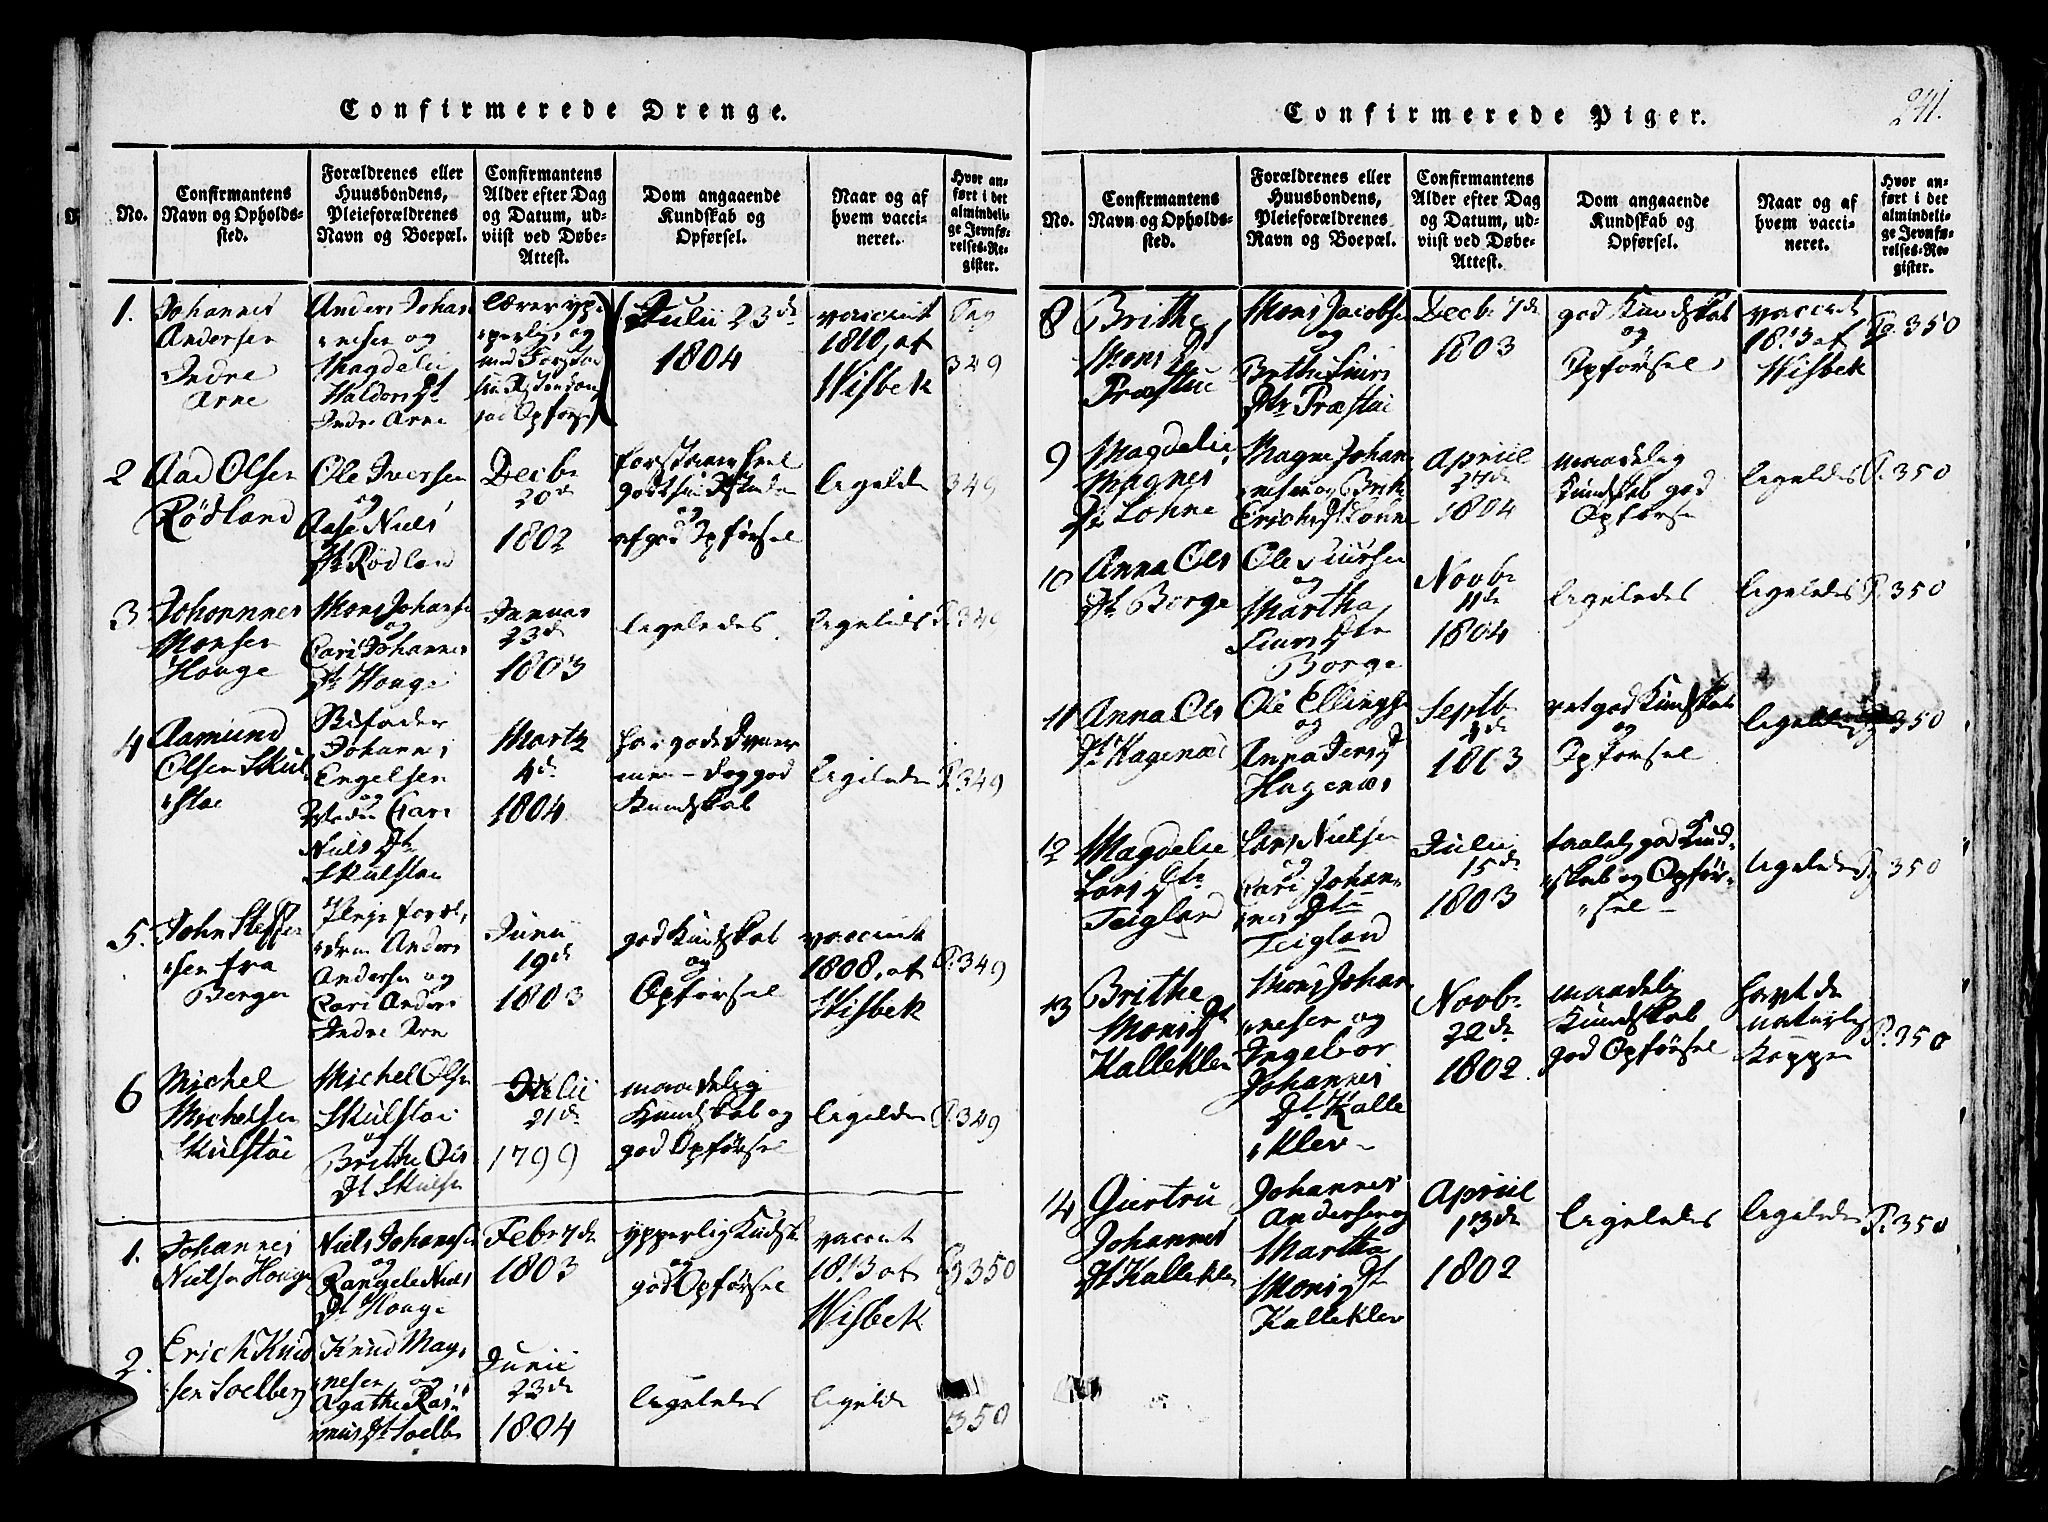 Confirmerede Drenge.
No.
Confirmantens
Navn og Opholds-
sted.
Forældrenes eller
Huusbondens,
Pleieforældrenes
Navn og Boepæl.
Confirmantens
Alder efter Dag
og Datum, ud-
viist ved Døbe-
Attest.
Dom angaaende
Kundskab og
Opførsel.
Naar og af
hvem vacci-
neret.
Hvor an-
ført i det
almindeli-
ge Jevnfø-
relses-Re-
gister.
1.
Johannes
Andersen
Indre
Arne
Anders Johan
nesen og
Magdelie
Haldors Dt
Indre Arne
lærer yp-
perlig og
god Opførsel
Julii 23de
1804
vaccint
1810, af
Wisbek
Pag
349
2
Aad Olsen
Rödland
Ole Iversen
og
Aase Niels
Dt Rödland
Decbr
20de
1802
og
af god Opførsel
ligeledes
349
3
Johannnes
Monsen
Houge
Mons Johanse
og
Cari Johannes
Dt Houge
Januar
23de
1803
ligeledes
ligeledes
P. 349
4
Aamund
Olsen Skul
stoe
Stifader
Johannes
Engelsen
og
Moder Cari
Niels Dt
Skulstoe
Martz
4de
1804
har gode Evner
men - dog god
Kundskab
ligeledes
P. 349
5.
John Steffen
sen fra
Bergen
Pleje foræl,
dren Anders
Andersen og
Cari Anders
Indre Arne
Junii
19de
1803
god Kundskab
og
Opførsel
vaccint
1808, af
Wisbek
P. 349
6
Michel
Michelsen
Skulstoe
Michel Olsen
Skulstoe
og
Brithe Ols
Dt Skulsto
Julii
21de
1799
maadelig
Kundskab og
god Opførsel
ligeledes
P. 349
1.
Johannes
Nielsen Houge
Niels Johansen
og
Rangele Niels
Dt Houge
Febr 7de
1803
ypperlig Kundsk
og
god Opførsel
vaccint
1813 af
Wisbek
Pg 350
2.
Erich Knud
sen Soelberg
Knud Mag
nesen og
Agathe Ras
mus Dt Soelb
Junii
23de
1804
ligeledes
ligeledes
350
Confirmerede Piger.
241.
No.
Confirmantens
Navn og Opholds-
sted.
Forældrenes eller
Huusbondens,
Pleieforældrenes
Navn og Boepæl.
Confirmantens
Alder efter Dag
og Datum, ud-
viist ved Døbe-
Attest.
Dom angaaende
Kundskab og
Opførsel.
Naar og af
hvem vacci-
neret.
Hvor an-
ført i det
almindeli-
ge Jevnfø-
relses-Re-
gister.
8
Brithe
Mons Dt
Præstue
Mons Jacobse
og
Brithe
Dtr Præstue
Decbr 7de
1803
god Kundskab
og
Opførsel
vaccint
1813 af
Wisbek
Pg. 350
9
Magdelie
Magnes
Dt Lohne
Magne Johan
nesen og Brite
Erichs Dt Lohne
Apriil
27de
1804
maadelig
Kundskab god
Opførse
ligeledes
P. 350
10
Anna Ols
Dt Borge
Ole
og
Martha
Einers Dtr
Borge
Novbr
11de
1804
ligeledes
ligeledes
P. 350
11
Anna Ols
Dt Hagenæs
Ole Ellings
og
Anna Jens Dt
Hagenæs
Septb
1803
ret god Kundskab
og
Opførsel
ligeledes
350
12
Magdelie
Lars Dtr
Teigland
Lars Nielsen
og
Cari Johan
nes Dtr
Teigland
Julii
15de
1803
taalelig god Kund
skab og Opfør-
sel -
ligeledes
Pg 350
13
Brithe
Mons Dt
Kalleklev
Mons Johan
nesen og
Ingebor
Johannes
Dt Kalle
klev -
Novbr
22de
1802
maadelig
Kundskab
god Opførsel
havt de
naturlig
Kopper
P. 350
14
Giertru
Johannes
Dt Kalleklev
Johannes
Andersen og
Martha
Mons Dt
Kalleklev
Apriil
13de
1802
ligeledes
ligeledes
P. 350